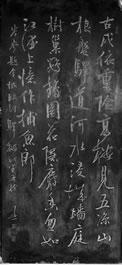 古戍依重險高樓見五涼山
根盤驛道河水浸城庭
樹巢鸚鵡園花隱麝香忽如
江浦上憶作捕魚郎